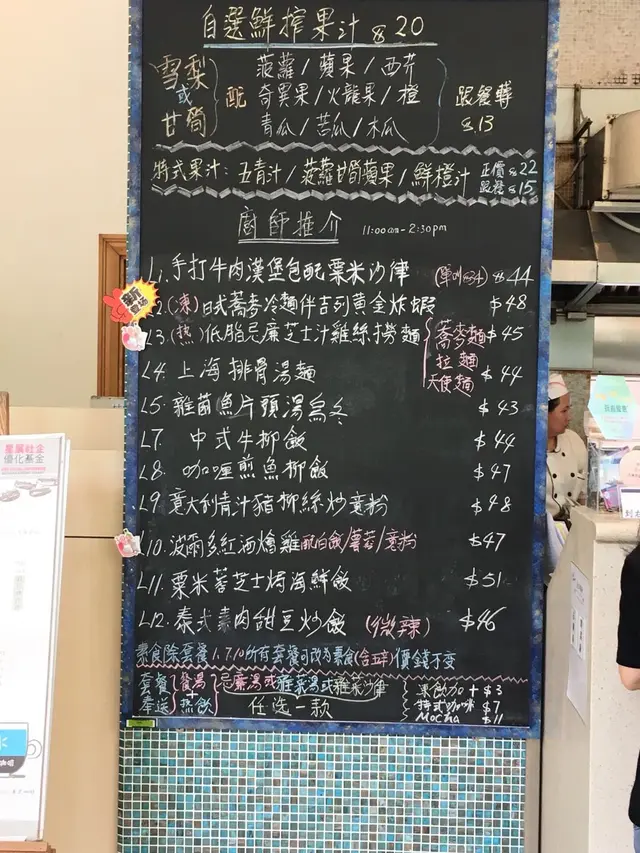 自選鮮搾果汁 $20
雪梨 或 甘筍 配
菠蘿/蘋果/西芹
奇異果/火龍果/橙
青瓜/苦瓜/木瓜
跟餐轉
$13
特式果汁: 五青汁/菠蘿甘筍蘋果/鮮橙汁 正價 $22
跟餐 $15
廚師推介 11:00am-2:30pm
L1. 手打牛肉漢堡包配粟米沙律 (單叫 $34) $44
L2.(凍)日式蕎麥冷麵伴吉列黃金炸蝦 $48
L3.(熱)低脂忌廉芝士汁雞絲撈麵 蕎麥麵 $45
拉麵
天使麵 $44
L4. 上海排骨湯麵
L5. 雜菌魚片頭湯烏冬 $43
L7 中式牛柳飯 $44
L8. 咖喱煎魚柳飯 $47
L9. 意大利青汁豬柳絲炒意粉 $48
L10. 波爾多紅酒燴雞配白飯/薯蓉/意粉 $47
L11. 粟米蓉芝士焗海鮮飯 $51
L12. 泰式素肉甜豆炒飯 (微辣) $46
素食除套餐1.7.10所有套餐可改為素食(含五辛)價錢不變
套餐 奉送
餐湯 + 熱飲
忌廉湯或雜菜湯或雜菜沙律
任選一款
凍飲加 + $3
特式咖啡 $7
Mocha $11
星展社企
優化基金